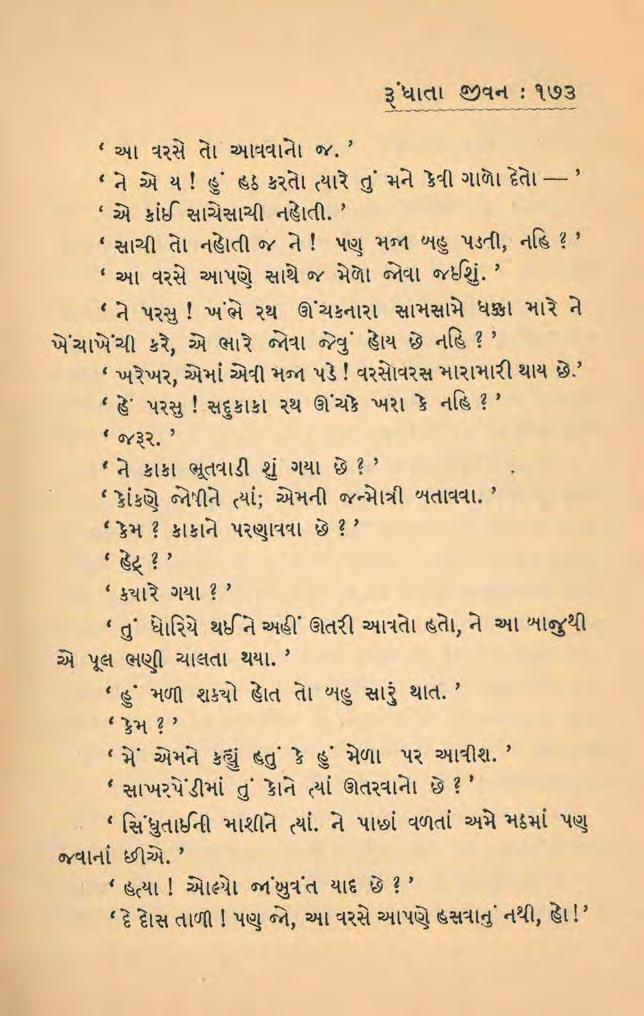 રૂંધાતા જીવન : ૧૭૩
‘ આ વરસે તો આવવાનો જ. ’
‘ ને એ ય ! હું હઠ કરતો ત્યારે તું મને કેવી ગાળો દેતો — ’
‘ એ કાંઈ સાચેસાચી નહોતી. ’
‘ સાચી તો નહોતી જ ને ! પણ મજા બહુ પડતી, નહિ ? ’
‘ આ વરસે આપણે સાથે જ મેળો જોવા જઈશું. ’
‘ ને પરસુ ! ખંભે રથ ઊંચકનારા સામસામે ધક્કા મારે ને
ખેંચાખેંચી કરે, એ ભારે જોવા જેવું હોય છે નહિ ? ’
‘ ખરેખર, એમાં એવી મજા પડે ! વરસોવરસ મારામારી થાય છે.’
‘ હેં પરસુ ! સદુકાકા રથ ઊંચકે ખરા કે નહિ ? ’
‘ જરૂર. ’
‘ ને કાકા ભૂતવાડી શું ગયા છે ? ’
‘ કોંકણે જોષીને ત્યાં; એમની જન્મોત્રી બતાવવા. ’
‘ કેમ ? કાકાને પરણાવવા છે ? ’
‘ હેટ્ ? ’
‘ ક્યારે ગયા ? ’
‘ તું ધોરિયે થઈને અહીં ઊતરી આવતો હતો, ને આ બાજુથી
એ પૂલ ભણી ચાલતા થયા. ’
‘ હું મળી શક્યો હોત તો બહુ સારું થાત. ’
‘ કેમ ? ’
‘ મેં એમને કહ્યું હતું કે હું મેળા પર આવીશ. ’
‘ સાખરપેંડીમાં તું કોને ત્યાં ઊતરવાનો છે ? ’
‘ સિંધુતાઈની માશીને ત્યાં. ને પાછાં વળતાં અમે મઠમાં પણ
જવાનાં છીએ. ’
‘ હત્યા ! ઓલ્યો જાંબુવંત યાદ છે ? ’
‘ દે દોસ તાળી ! પણ જો, આ વરસે આપણે હસવાનું નથી, હો ! ’